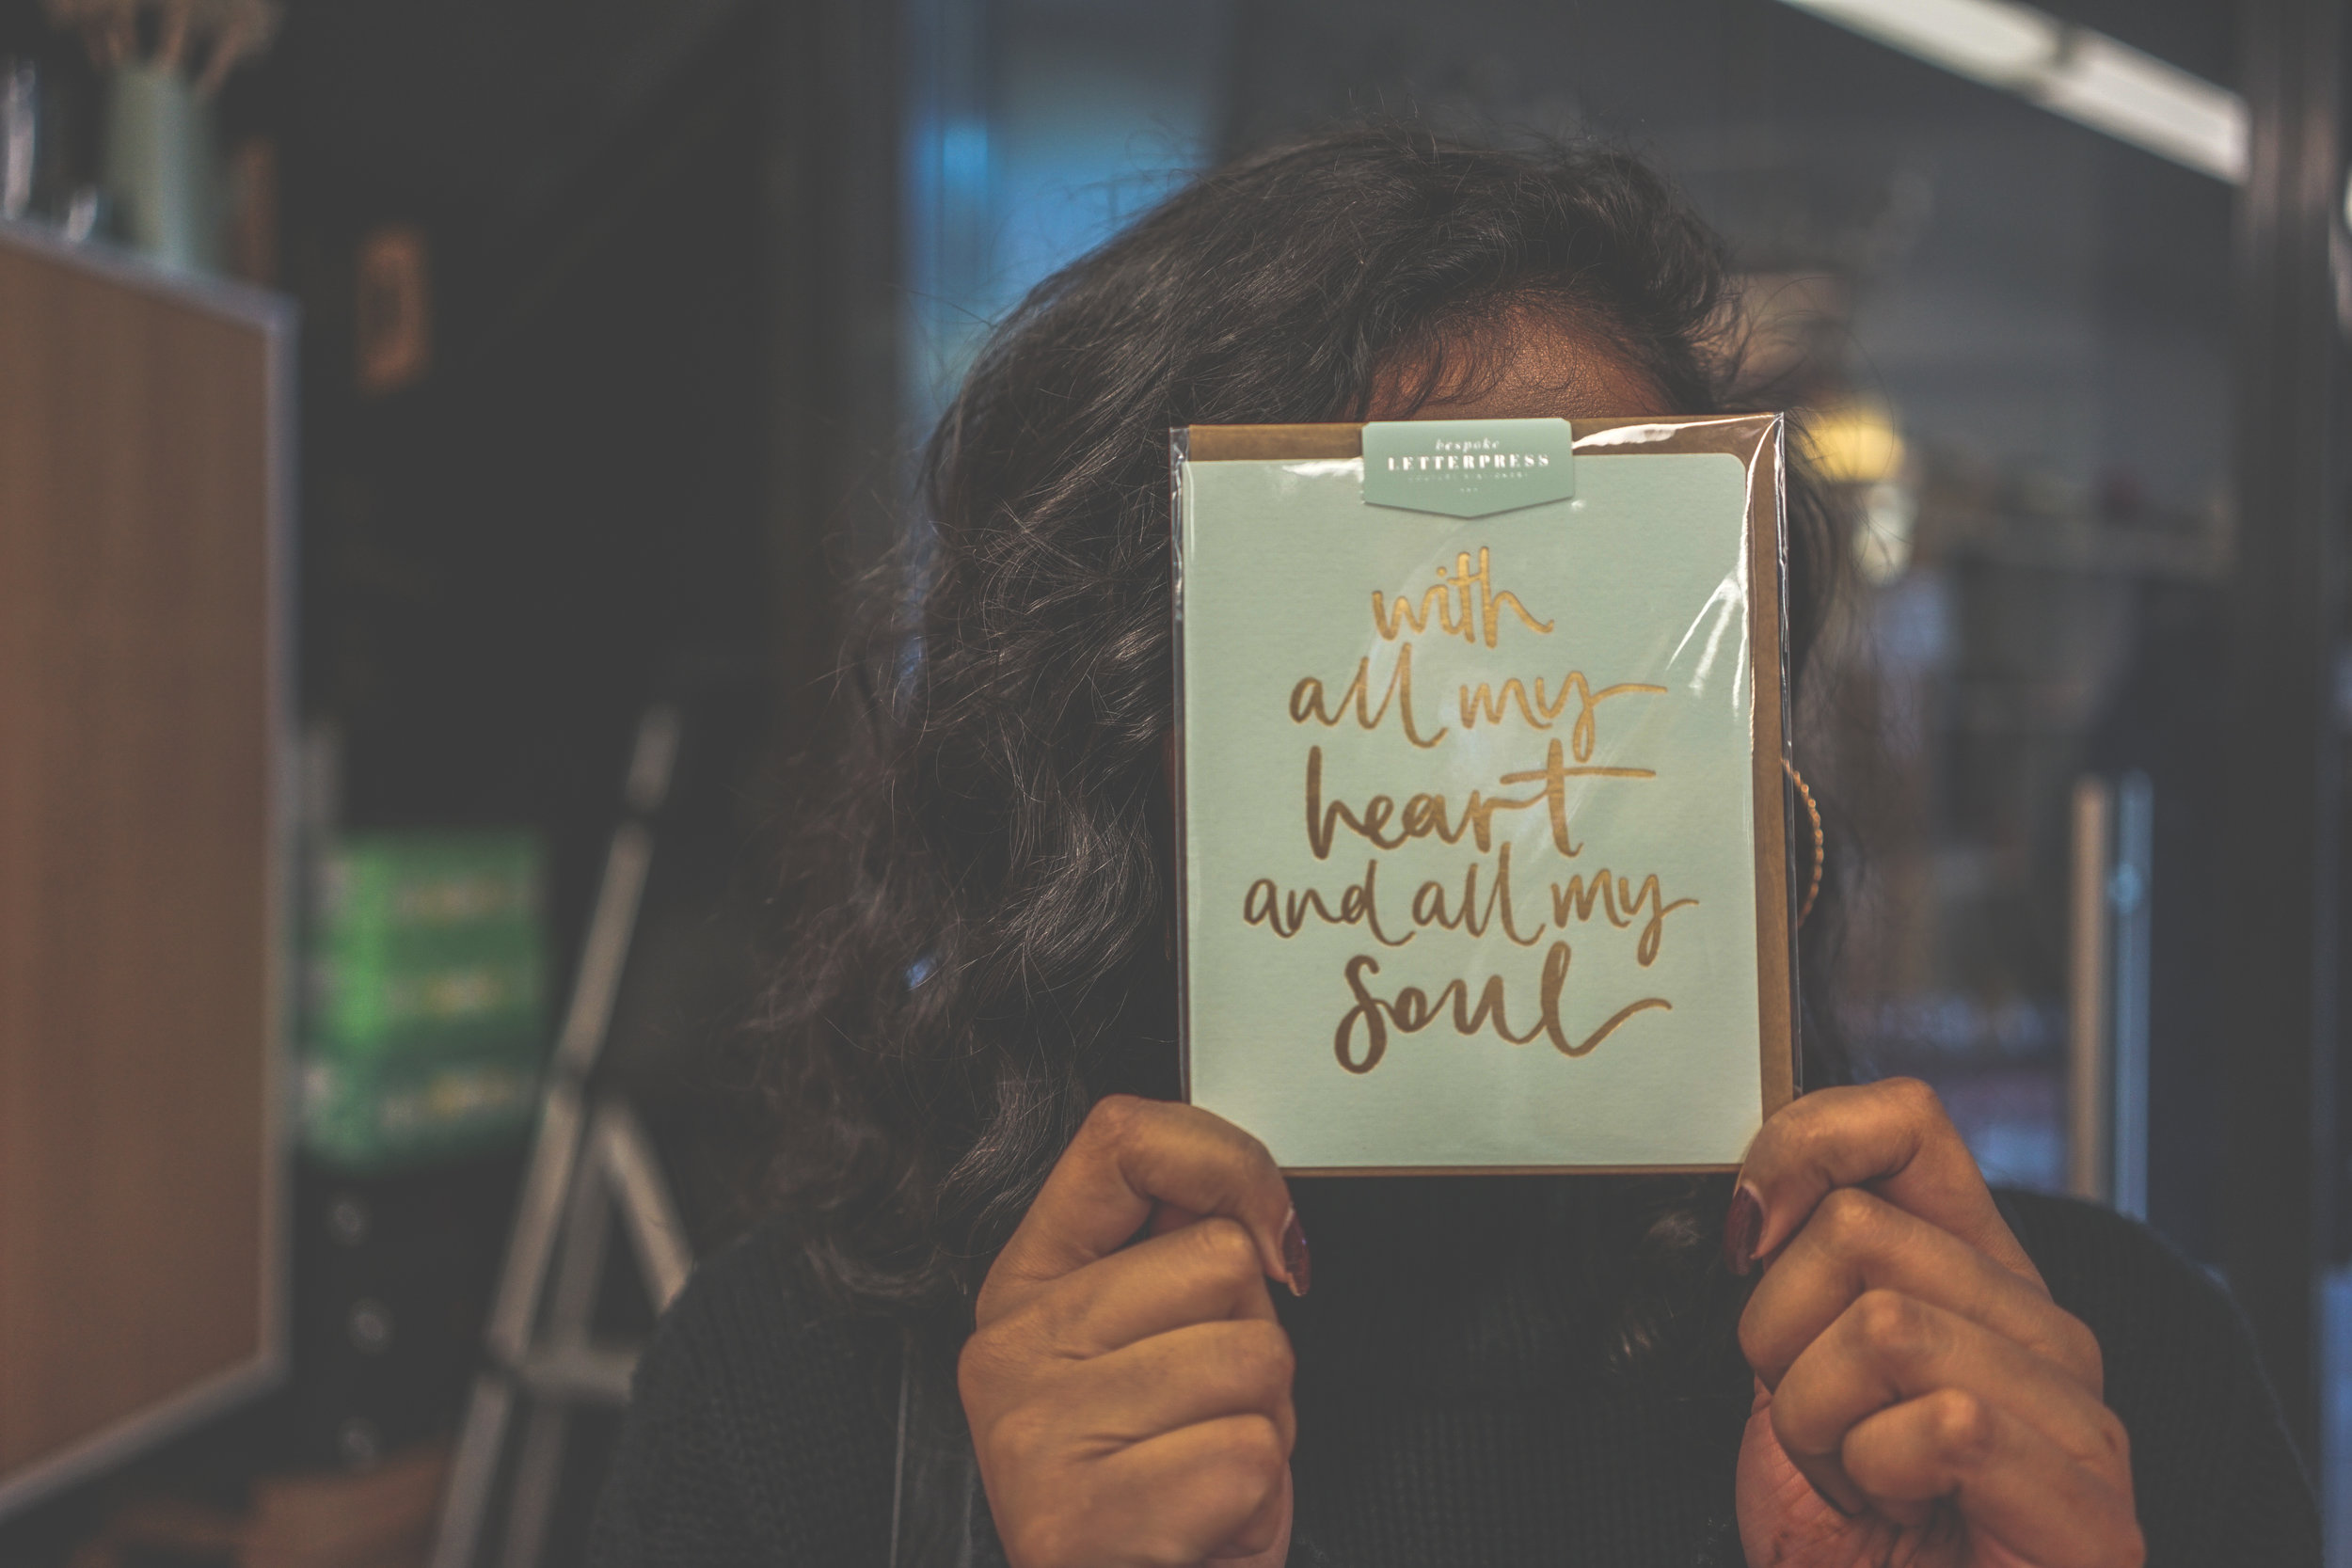 bespoke
LETTERPRESS
with
all my
heart
and all my
soul